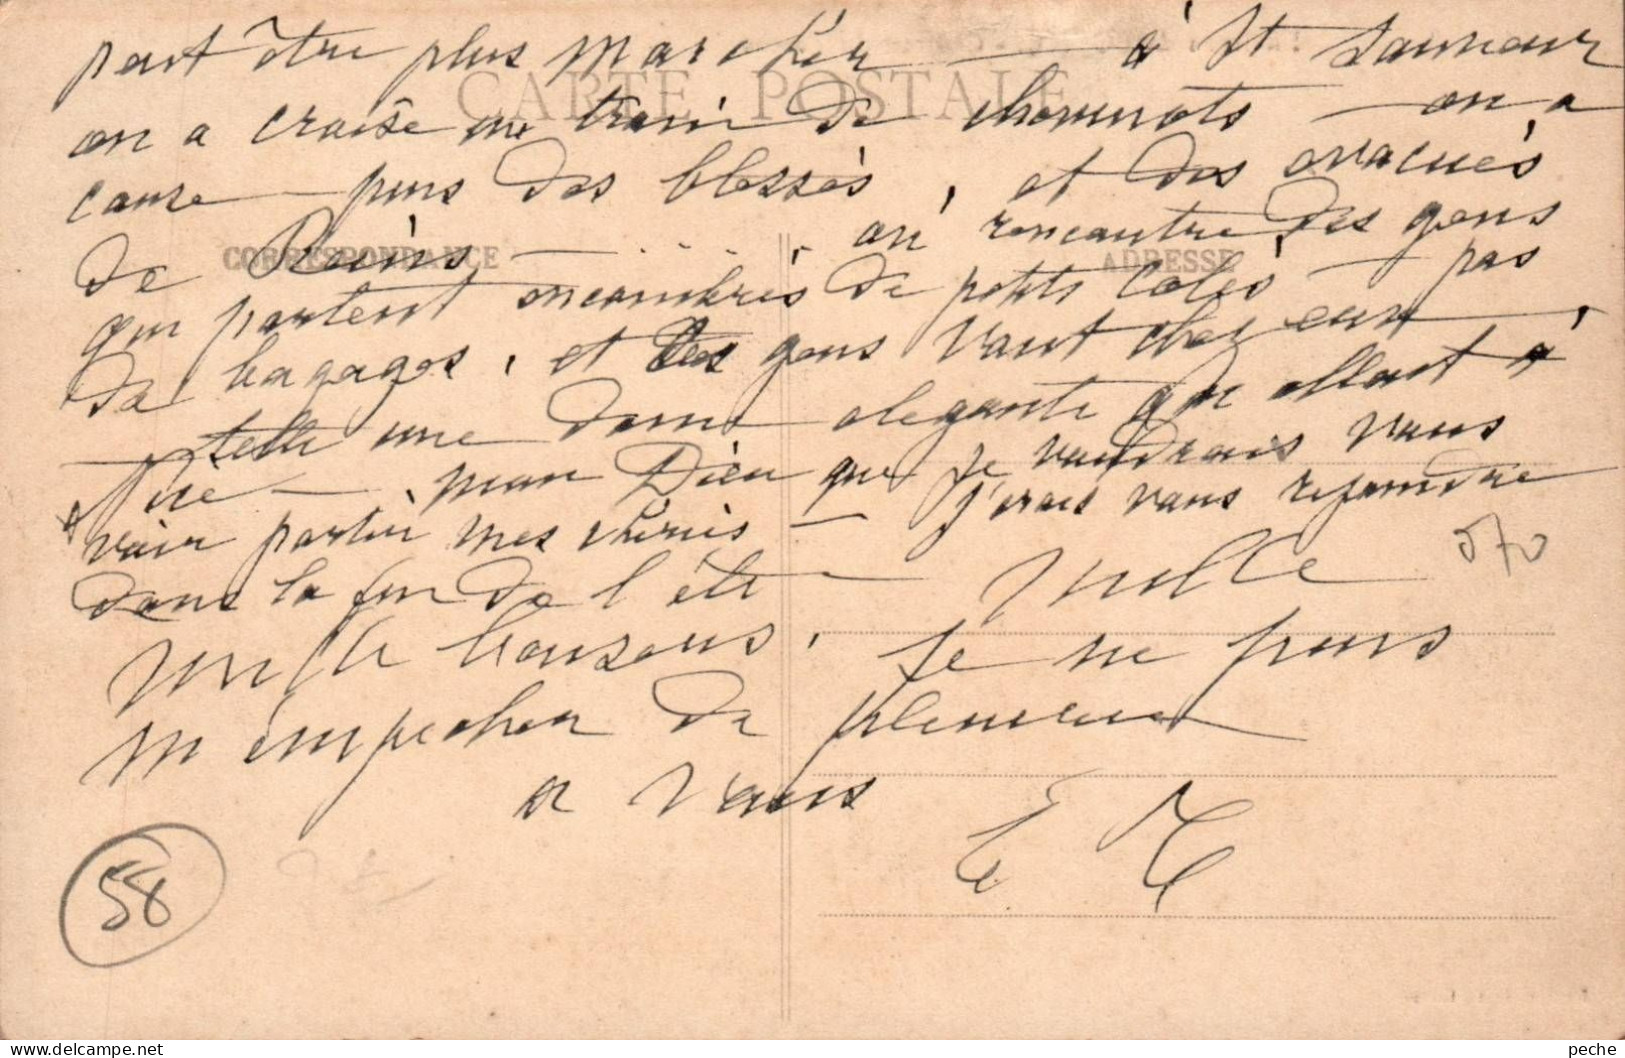 peut être plus marcher — à St Sauveur
CARTE POSTALE
on a croisé un train de cheminots — on a
causé — puis des blessés, et des évacués
de Reims — on rencontre des gens
CORRESPONDANCE
ADRESSE
qui partent encombrés de petits colis — pas
de bagages, et des gens vont chez eux,
telle une dame élegante qui allait à
Nice — mon Dieu que je voudrais vous
voir partir mes chéris — j'irais vous rejoindre
dans la fin de l'été — mille
mille baisers, Je ne puis
m'empecher de pleurer
a vous
E T
58
570
peche